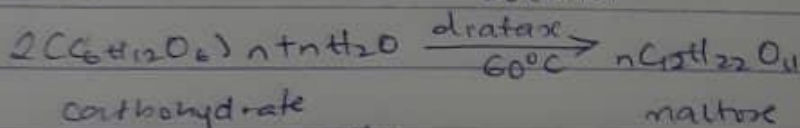 2(C₆H₁₂O₆)n+nH₂O diatase 60°C → nC₁₂H₂₂O₁₁
carbohydrate maltose